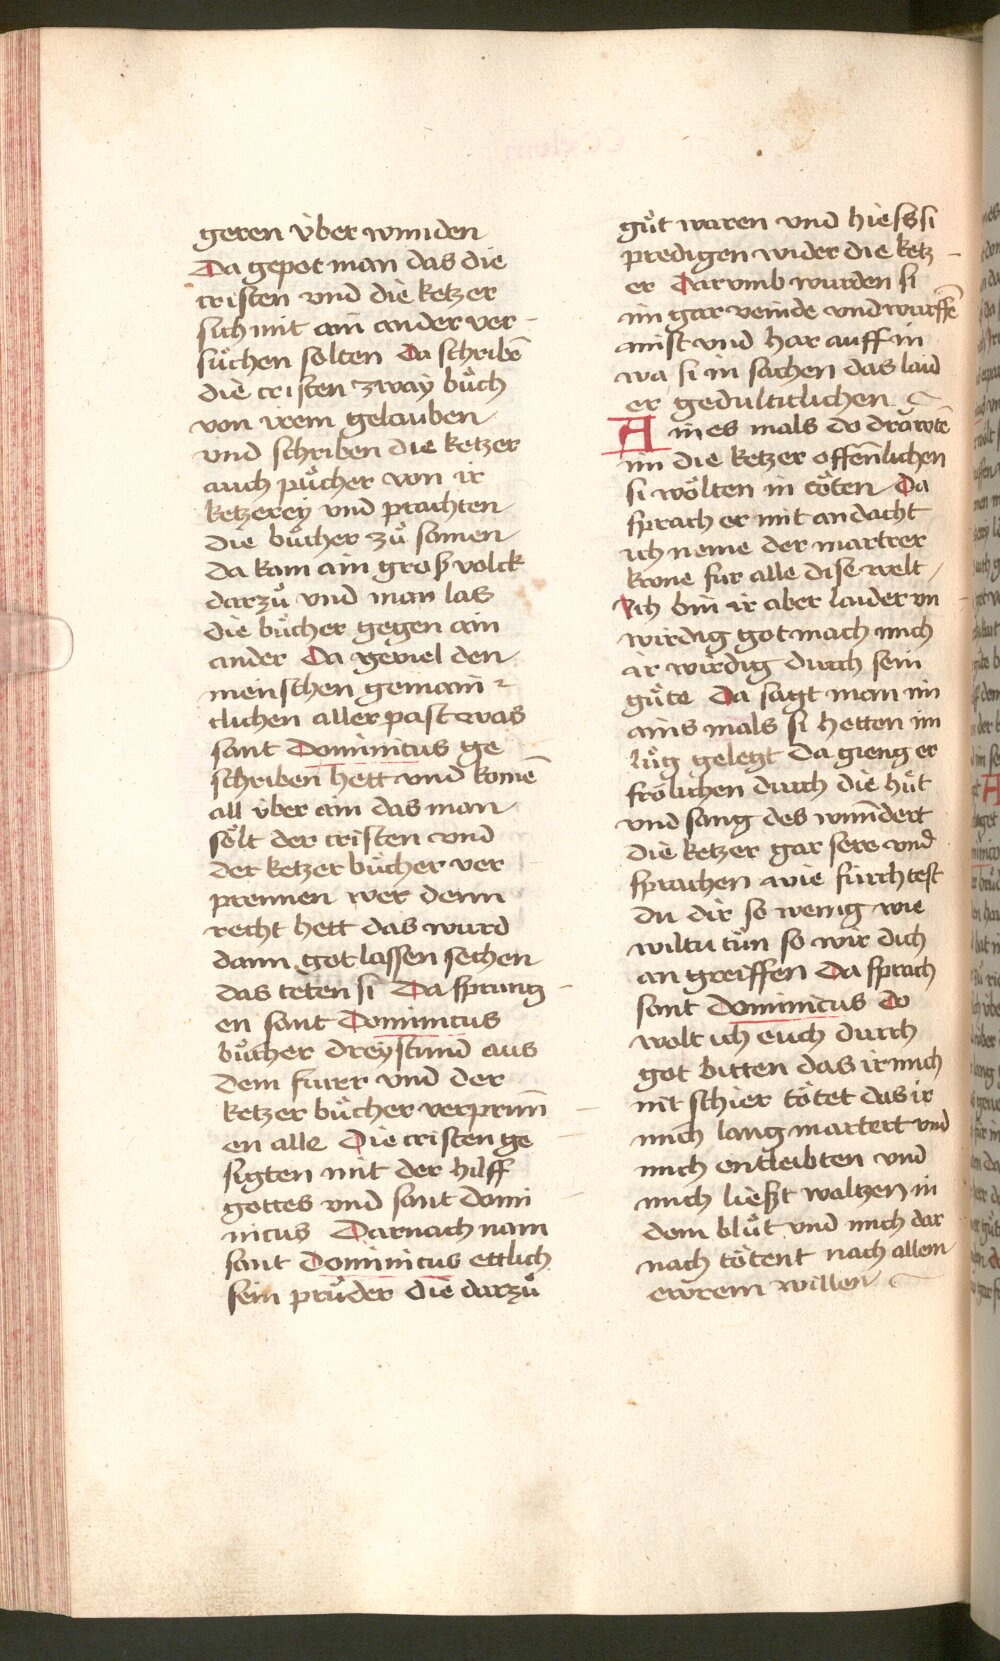 geren vͤber wunden
Da gepot man das die
cristen vnd die ketzer
sich mit ain ander ver-
suͤchen solten Da schribē
die cristen zway buͤch
von irem gelauben
vnd schriben die ketzer
auch puͤcher von ir
ketzerey vnd prachten
die buͤcher zuͦ samen
da kam ain groß volck
darzuͦ vnd man las
die buͤcher gegen ain
ander Da geviel den
menschen gemain-
clichen aller past was
sant Dominicus ge
schriben hett vnd komē
all vͤber ain das man
soͤlt der cristen vnd
der ketzer buͤcher ver
prennen wer denn
recht hett das wurd
dann got lassen sechen
das teten si Da sprung-
en sant Dominicus
buͤcher dreystund aus
dem furer vnd der
ketzer buͤcher verprun̄-
en alle Die cristen ge-
sigten mit der hilff
gottes vnd sant domi
nicus Darnach nam
sant Dominicus ettlich
sein pruͤder die darzuͦ
guͦt waren vnd hiess si
predigen wider die ketz-
er Darvmb wurden si
im gar veinde vnd wurffē
mist vnd har auff in
wa si in sachen das laid
er gedulticlichen
Aines mals do dráwtē
im die ketzer offenlichen
si woͤlten in toͤten Da
sprach er mit andacht
ich neme der martrer
krone fur alle dise welt
Ich bin ir aber laider vn-
wirdig got mach mich
ar wirdig durch sein
guͤte Da sagt man im
ains mals si hetten im
luͦg gelegt Da gieng er
froͤlichen durch die huͦt
vnd sang des wundert
die ketzer gar sere vnd
sprachen wie fürchtest
du dir so wenig wie
wiltu tuͦn so wir dich
an greiffen Da sprach
sant Dominicus Do
wolt ich euch durch
got bitten das ir mich
nit schier toͤtet das ir
mich lang martert vnd
mich entleibten vnd
mich ließt waltzen in
dem bluͦt vnd mich dar
nach toͤtent nach allem
ewrem willen